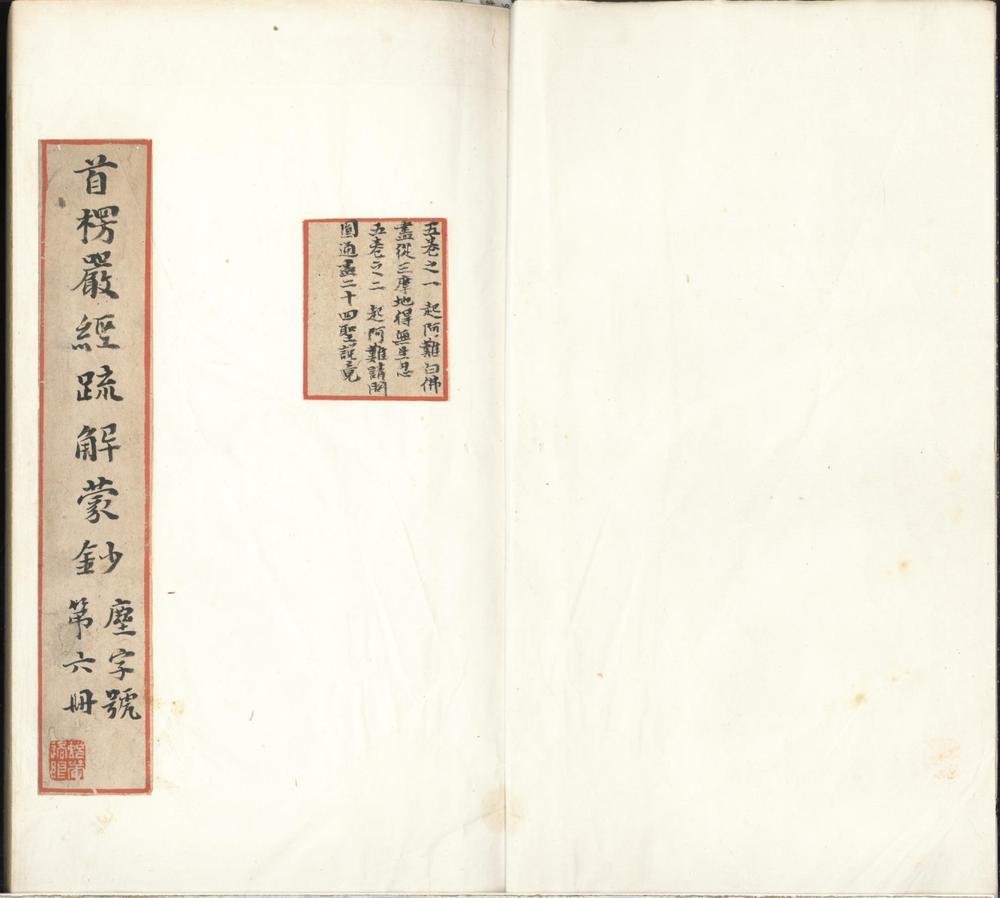 首楞嚴經疏解蒙鈔
塵字號
第六冊
五卷之一 起阿難白佛
盡從三摩地得無生忍
五卷之二 起阿難請開
圓通盡二十四聖說竟